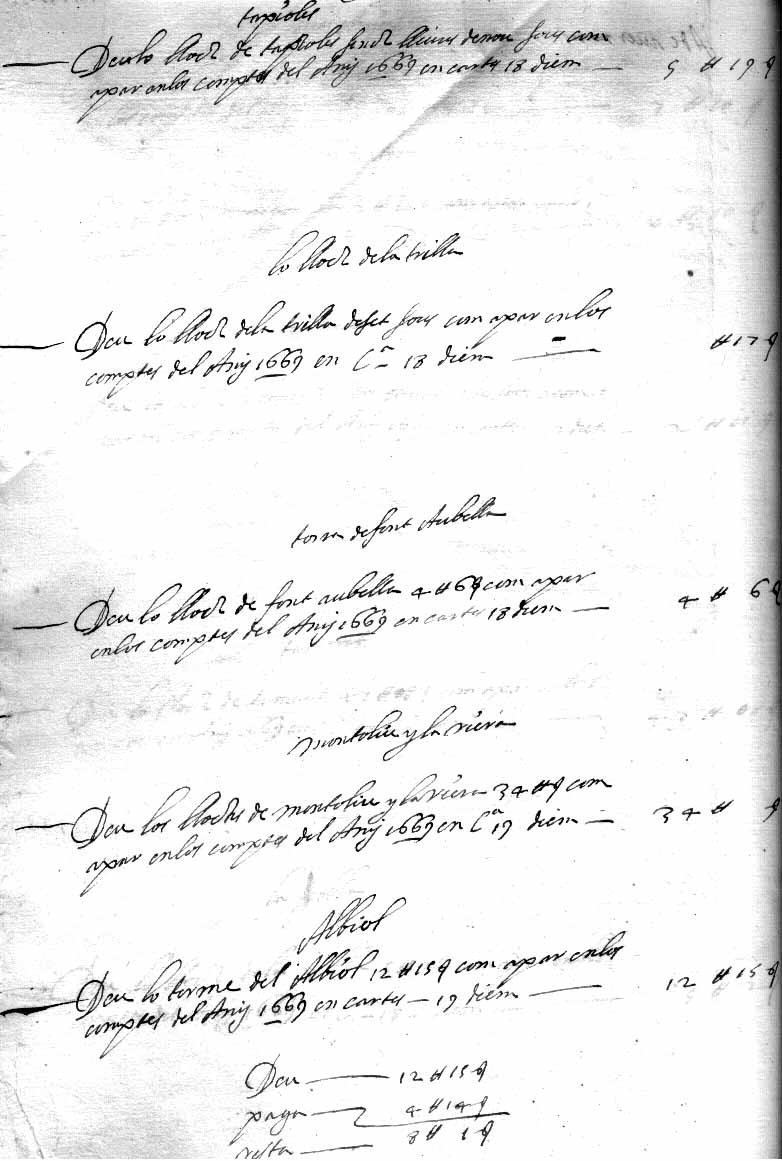 tapioles
Deu lo lloch de tapioles sinch lliures denou sous com
apar en los comptes del Any 1669 en cartes 18 diem — 5 # 19 ꝭ
lo lloch de la trilla
Deu lo lloch dela trilla deset sous com apar en los
comptes del Any 1669 en Cª 18 diem — # 17 ꝭ
torra de font Aubella
Deu lo lloch de font aubella 4 # 6 ꝭ com apar
en los comptes del Any 1669 en cartes 18 diem — 4 # 6 ꝭ
montoliu y la riera
Deu los llochs de montoliu y la riera 34 # ꝭ com
apar en los comptes del Any 1669 en Cª 19 diem — 34 # ꝭ
Albiol
Deu lo terme del Albiol 12 # 15 ꝭ com apar en los
comptes del Any 1669 en cartes — 19 diem — 12 # 15 ꝭ
Deu — 12 # 15 ꝭ
paga — 4 # 14 ꝭ
resta — 8 # 1 ꝭ